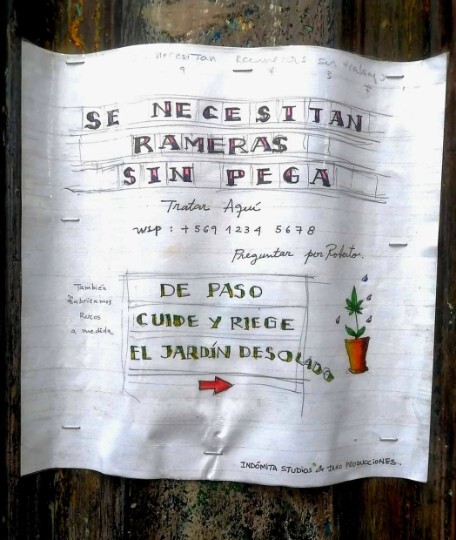 SE NECESITAN
RAMERAS
SIN PEGA
Tratar Aquí
WSP : +569 1234 5678
Preguntar por Roberto.
También
fabricamos
Rucos
a medida
DE PASO
CUIDE Y RIEGE
EL JARDÍN DESOLADO
INDÓMITA STUDIOS & JANO PRODUCCIONES.